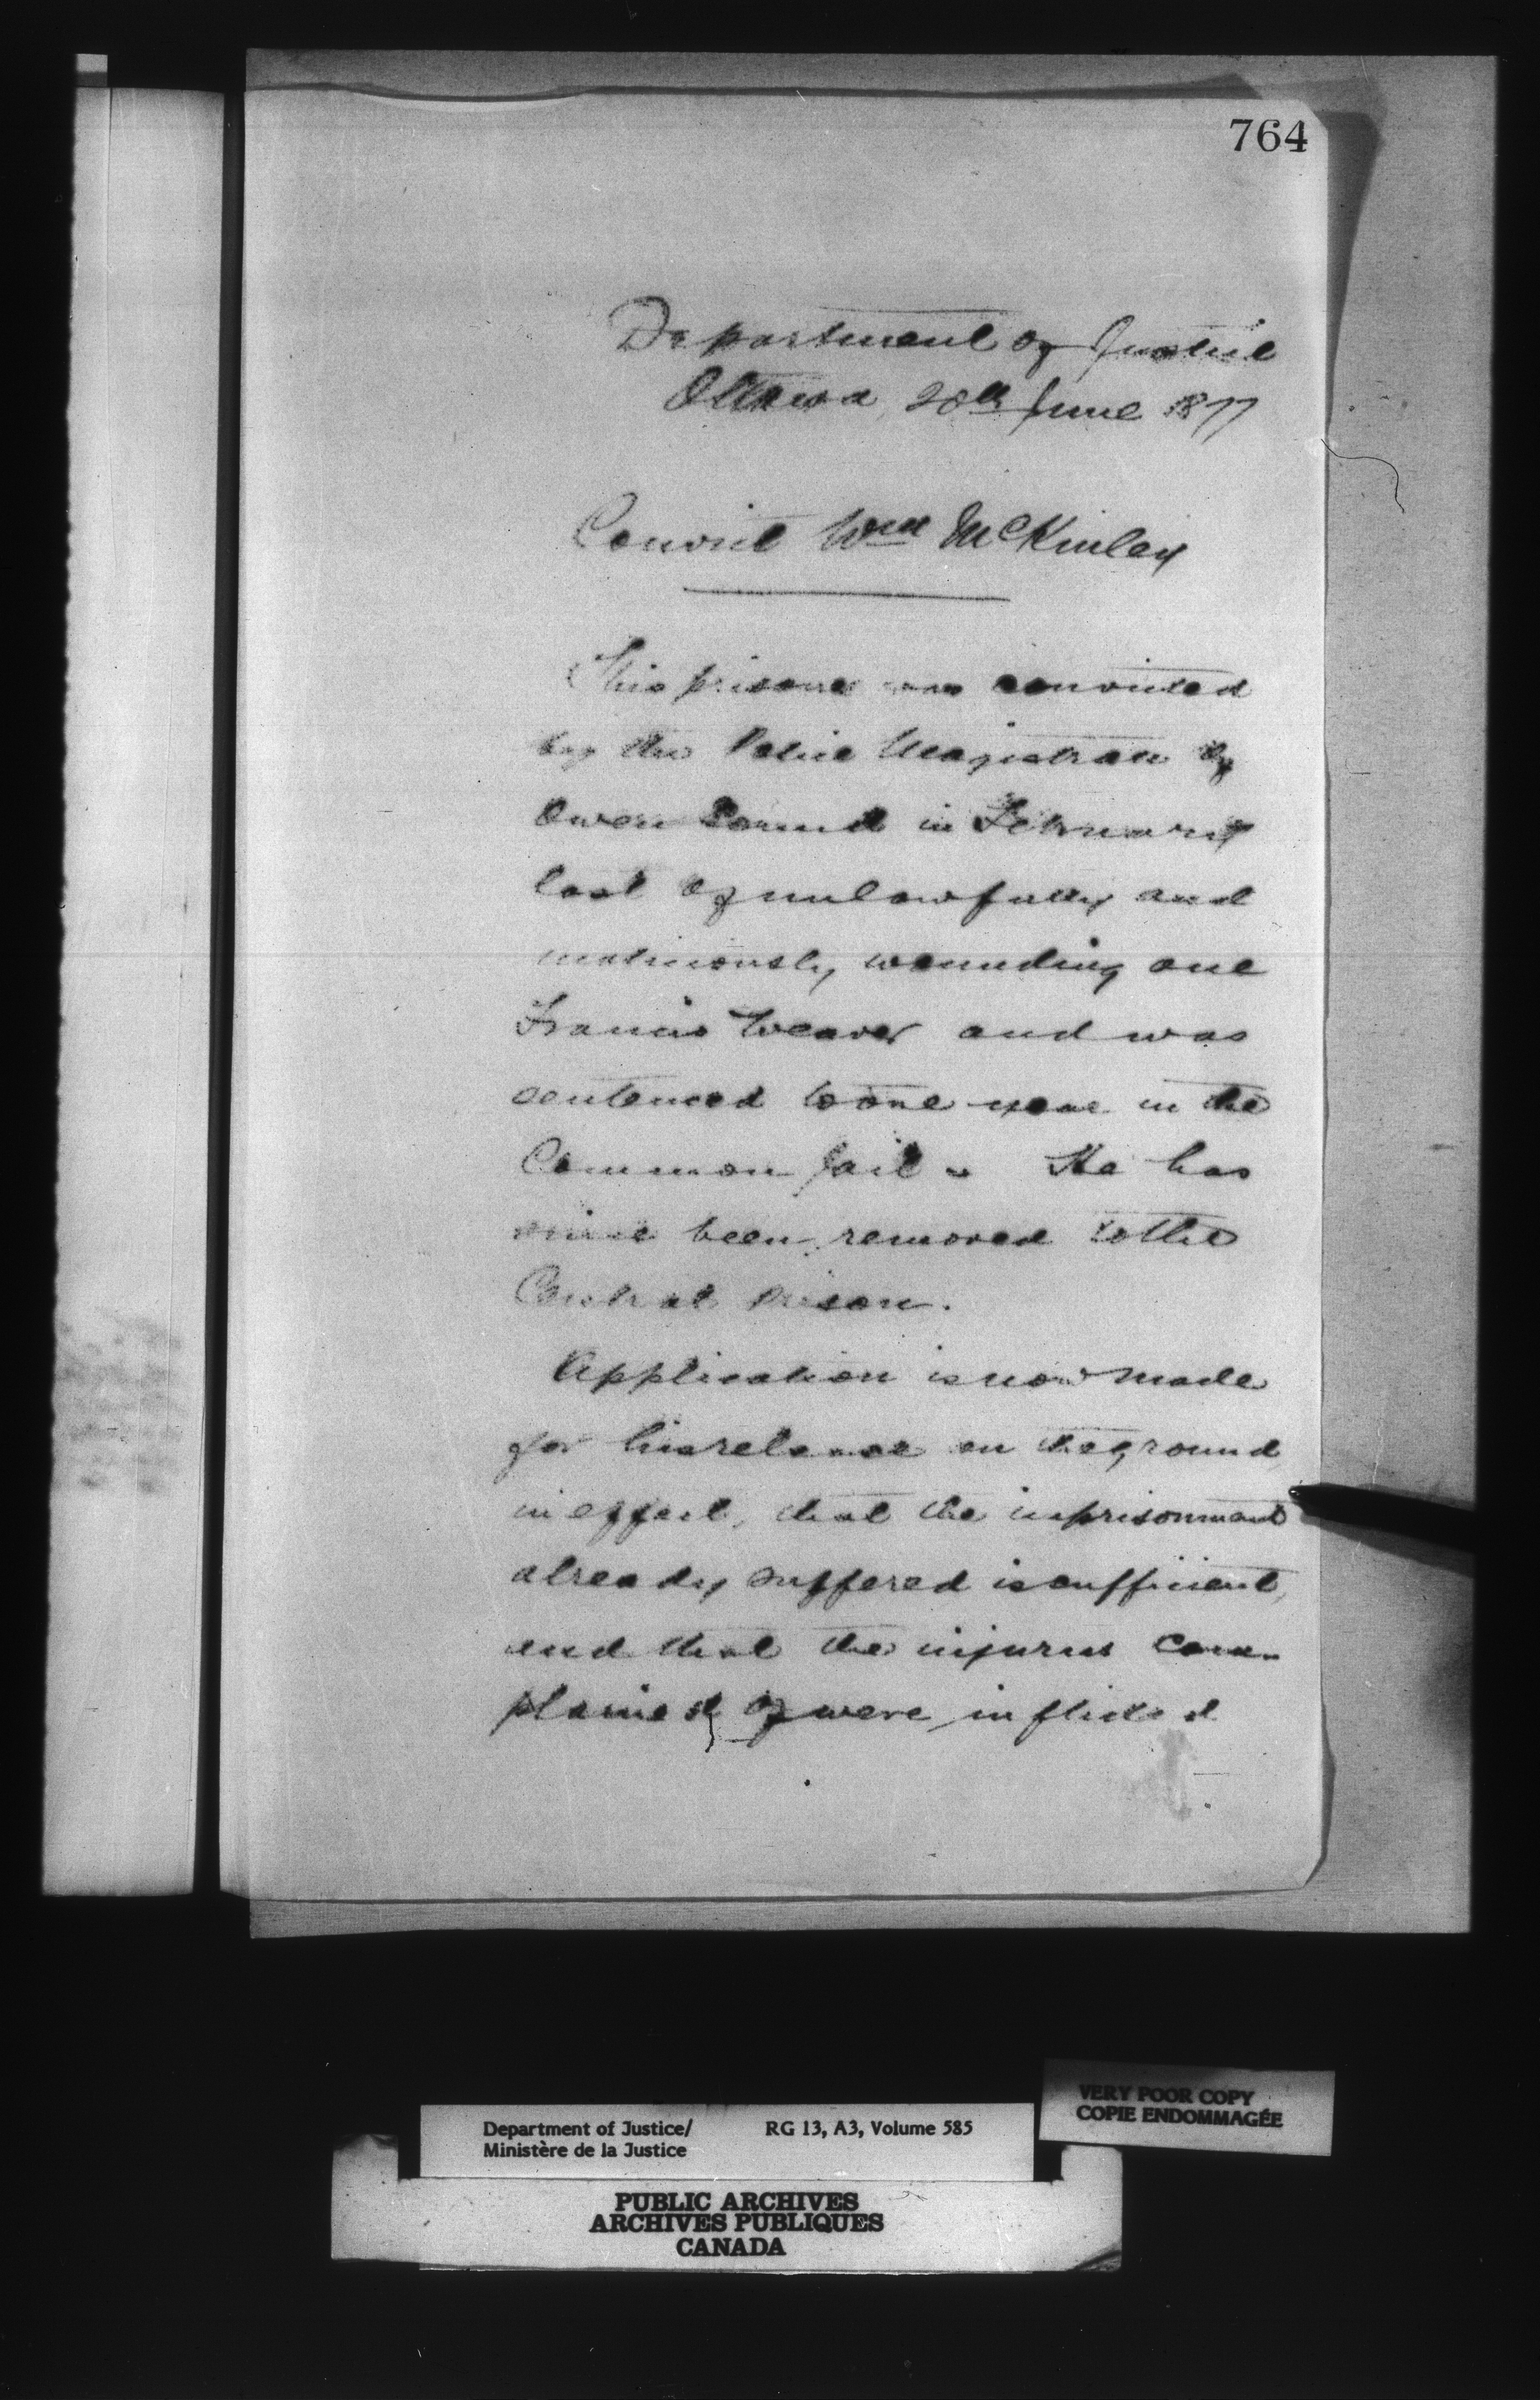 764
Department of Justice
Ottawa, 20th June 1877
Convict Wm McKinley
This prisoner was convicted
by the Police Magistrate of
Owen Sound in February
last of unlawfully and
maliciously wounding one
Francis Weaver and was
sentenced to one year in the
Common Jail. He has
since been removed to the
Central Prison.
Application is now made
for his release on the ground,
in effect, that the imprisonment
already suffered is sufficient,
and that the injuries com-
plained of were inflicted
VERY POOR COPY
COPIE ENDOMMAGÉE
Department of Justice/ RG 13, A3, Volume 585
Ministère de la Justice
PUBLIC ARCHIVES
ARCHIVES PUBLIQUES
CANADA